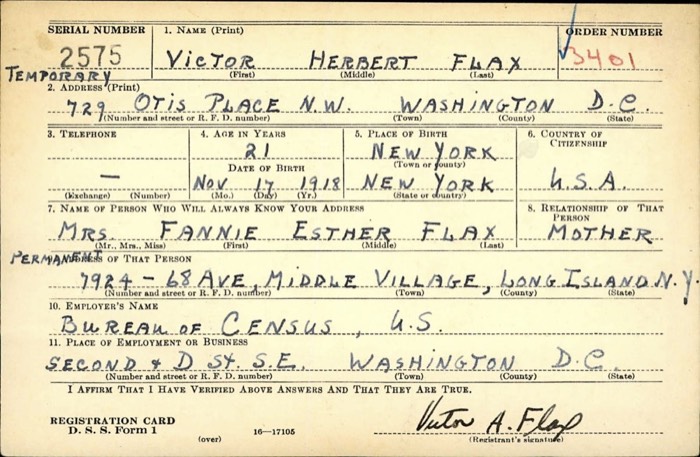 SERIAL NUMBER 1. NAME (Print) ORDER NUMBER
2575 VICTOR HERBERT FLAX 3401
TEMPORARY (First) (Middle) (Last)
2. ADDRESS (Print)
729 OTIS PLACE N.W. WASHINGTON D.C.
(Number and street or R. F. D. number) (Town) (County) (State)
3. TELEPHONE 4. AGE IN YEARS 5. PLACE OF BIRTH 6. COUNTRY OF CITIZENSHIP
21 NEW YORK
DATE OF BIRTH (Town or county)
— NOV 17 1918 NEW YORK U.S.A.
(Exchange) (Number) (Mo.) (Day) (Yr.) (State or country)
7. NAME OF PERSON WHO WILL ALWAYS KNOW YOUR ADDRESS 8. RELATIONSHIP OF THAT PERSON
MRS. FANNIE ESTHER FLAX MOTHER
(Mr., Mrs., Miss) (First) (Middle) (Last)
PERMANENT OF THAT PERSON
7924 - 68 AVE, MIDDLE VILLAGE, LONG ISLAND N.Y.
(Number and street or R. F. D. number) (Town) (County) (State)
10. EMPLOYER'S NAME
BUREAU OF CENSUS, U.S.
11. PLACE OF EMPLOYMENT OR BUSINESS
SECOND & D St. S.E. WASHINGTON D.C.
(Number and street or R. F. D. number) (Town) (County) (State)
I AFFIRM THAT I HAVE VERIFIED ABOVE ANSWERS AND THAT THEY ARE TRUE.
REGISTRATION CARD Victor A. Flax
D. S. S. Form 1 (over) 16—17105 (Registrant's signature)